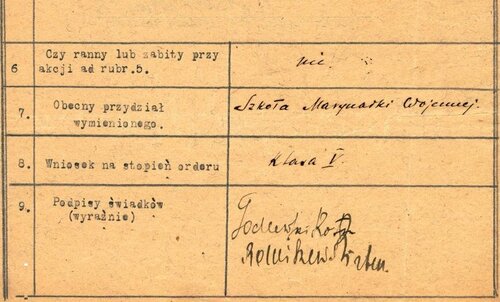 6 Czy ranny lub zabity przy
akcji ad rubr.5.
nie.
7. Obecny przydział
wymienionego.
Szkoła Marynarki Wojennej.
8. Wniosek na stopień orderu
Klasa V.
9. Podpisy świadków
(wyraźnie)